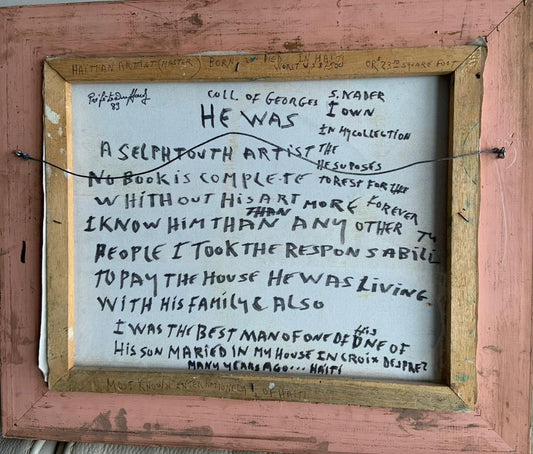 HAITIAN ARTIST (MASTER) BORN & DIED IN HAITI
WORST U.S $2500 OR 23TH SQUARE FOOT
89
COLL. OF GEORGES S. NADER
HE WAS I OWN
IN MY COLLECTION
A SELPHTOUTH ARTIST THE
HE SUPOSES
NO BOOK IS COMPLETE TO REST FOR THE
WHITHOUT HIS ART MORE FOREVER
THAN
I KNOW HIM THAN ANY OTHER
PEOPLE I TOOK THE RESPONSABILI TY
TO PAY THE HOUSE HE WAS LIVING
WITH HIS FAMILY & ALSO
I WAS THE BEST MAN OF ONE OF HIS ONE OF
HIS SON MARIED IN MY HOUSE IN CROIX DESPREZ
MANY YEARS AGO... HAITI
MOST KNOWN INTERNATIONELY OF HAITI